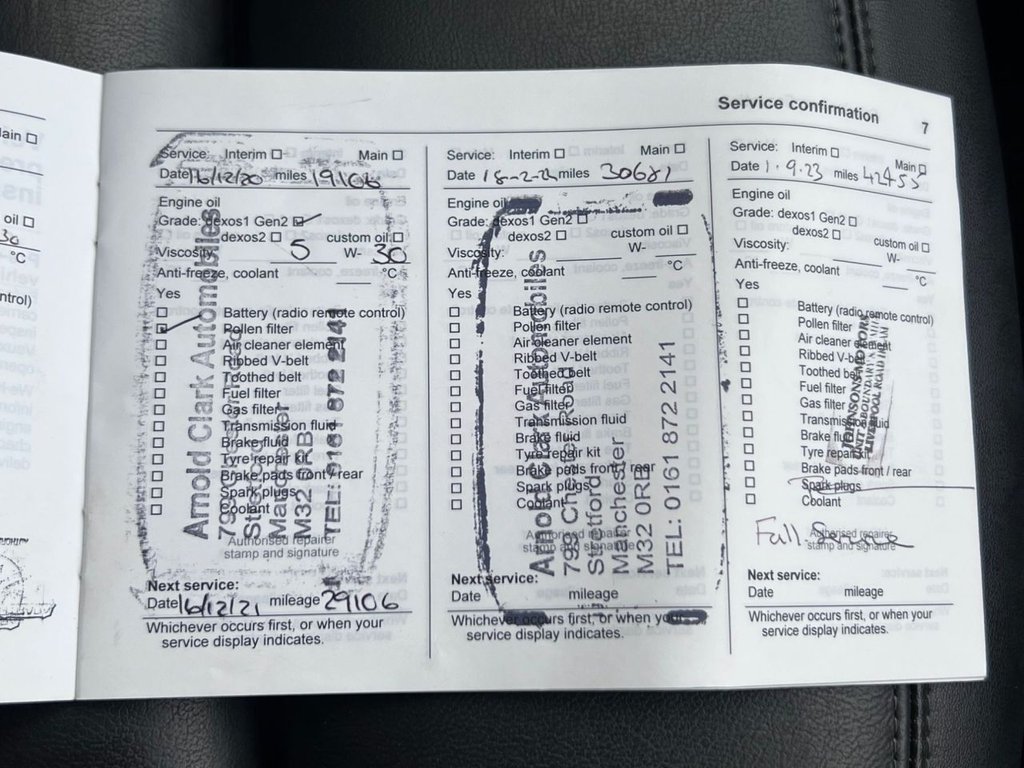 Service confirmation 7
Main ☐
oil ☐
30
°C
ntrol)
Service: Interim ☐ Main ☐
Date 16/12/20 miles 19106
Engine oil
Grade: dexos1 Gen2 ☑
dexos2 ☐ custom oil ☐
Viscosity: 5 W- 30
Anti-freeze, coolant °C
Yes
☐ Battery (radio remote control)
☑ Pollen filter
☐ Air cleaner element
☐ Ribbed V-belt
☐ Toothed belt
☐ Fuel filter
☐ Gas filter
☐ Transmission fluid
☐ Brake fluid
☐ Tyre repair kit
☐ Brake pads front / rear
☐ Spark plugs
☐ Coolant
Arnold Clark Automobiles
Manchester
M32 0RB
TEL: 0161 872 2141
Authorised repairer
stamp and signature
Next service:
Date 16/12/21 mileage 29106
Whichever occurs first, or when your
service display indicates.
Service: Interim ☐ Main ☐
Date 18-2-22 miles 30681
Engine oil
Grade: dexos1 Gen2 ☐
dexos2 ☐ custom oil ☐
Viscosity: W-
Anti-freeze, coolant °C
Yes
☐ Battery (radio remote control)
☐ Pollen filter
☐ Air cleaner element
☐ Ribbed V-belt
☐ Toothed belt
☐ Fuel filter
☐ Gas filter
☐ Transmission fluid
☐ Brake fluid
☐ Tyre repair kit
☐ Brake pads front / rear
☐ Spark plugs
☐ Coolant
Arnold Clark Automobiles
793 Chester Road
Stretford
Manchester
M32 0RB
TEL: 0161 872 2141
Authorised repairer
stamp and signature
Next service:
Date mileage
Whichever occurs first, or when your
service display indicates.
Service: Interim ☐ Main ☐
Date 1.9.23 miles 42453
Engine oil
Grade: dexos1 Gen2 ☐
dexos2 ☐ custom oil ☐
Viscosity: W-
Anti-freeze, coolant °C
Yes
☐ Battery (radio remote control)
☐ Pollen filter
☐ Air cleaner element
☐ Ribbed V-belt
☐ Toothed belt
☐ Fuel filter
☐ Gas filter
☐ Transmission fluid
☐ Brake fluid
☐ Tyre repair kit
☐ Brake pads front / rear
☐ Spark plugs
☐ Coolant
JOHNSONS MOTORS
LIVERPOOL ROAD
Full Service
Authorised repairer
stamp and signature
Next service:
Date mileage
Whichever occurs first, or when your
service display indicates.